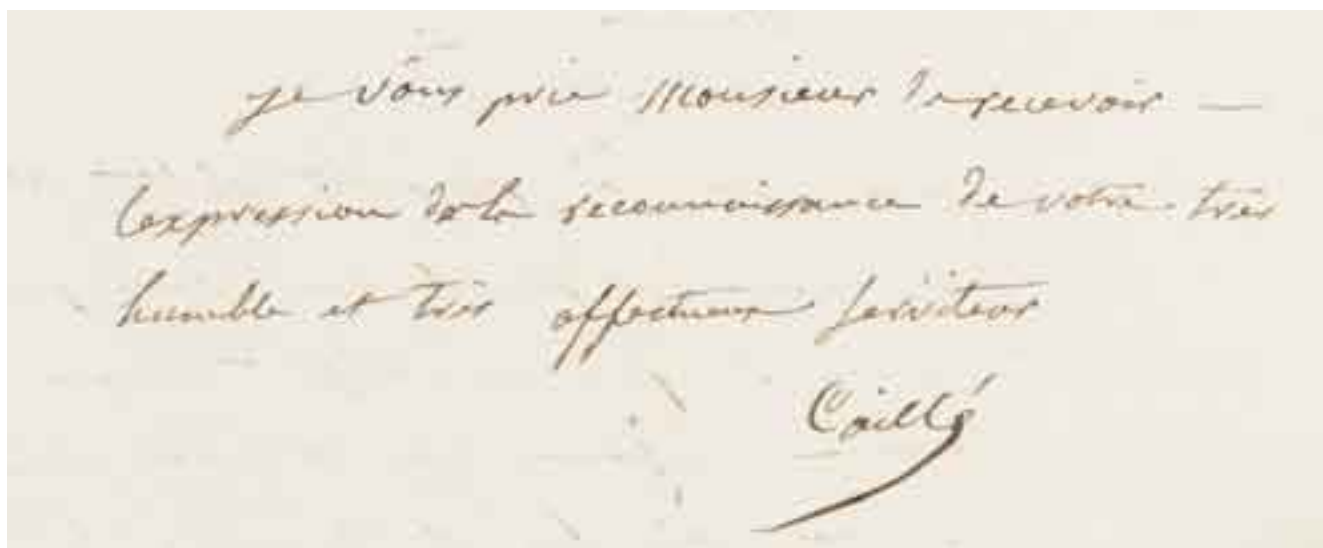 je vous prie Monsieur de recevoir —
l'expression de la reconnaissance de votre très
humble et très affectueux serviteur
Caillé